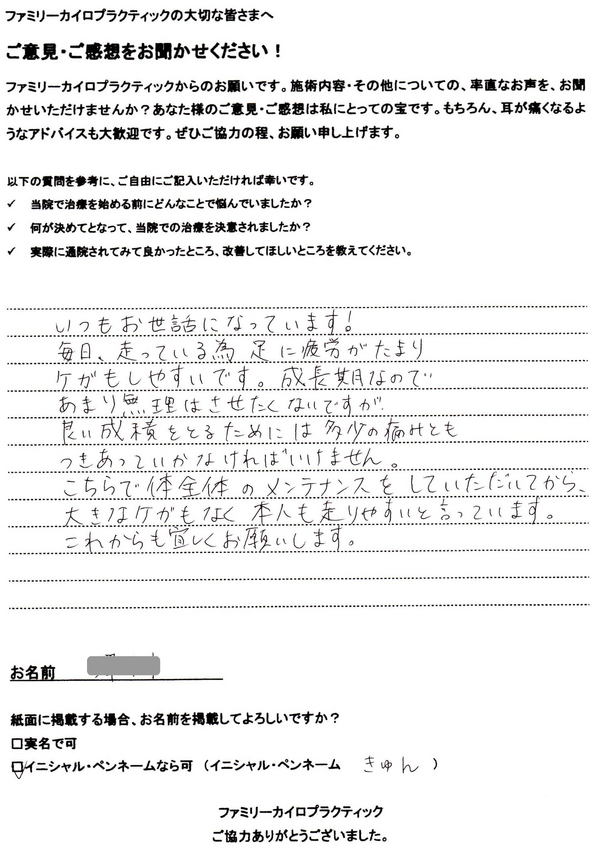 ファミリーカイロプラクティックの大切な皆さまへ
ご意見・ご感想をお聞かせください！
ファミリーカイロプラクティックからのお願いです。施術内容・その他についての、率直なお声を、お聞
かせいただけませんか？あなた様のご意見・ご感想は私にとっての宝です。もちろん、耳が痛くなるよ
うなアドバイスも大歓迎です。ぜひご協力の程、お願い申し上げます。
以下の質問を参考に、ご自由にご記入いただければ幸いです。
✓ 当院で治療を始める前にどんなことで悩んでいましたか？
✓ 何が決めてとなって、当院での治療を決意されましたか？
✓ 実際に通院されてみて良かったところ、改善してほしいところを教えてください。
いつもお世話になっています！
毎日、走っている為 足に疲労がたまり
ケガもしやすいです。成長期なので
あまり無理はさせたくないですが
良い成積をとるためには多少の痛みとも
つきあっていかなければいけません。
こちらで体全体のメンテナンスをしていただいてから、
大きなケガもなく本人も走りやすいと言っています。
これからも宜しくお願いします。
お名前
紙面に掲載する場合、お名前を掲載してよろしいですか？
□実名で可
□イニシャル・ペンネームなら可 （イニシャル・ペンネーム きゅん ）
ファミリーカイロプラクティック
ご協力ありがとうございました。